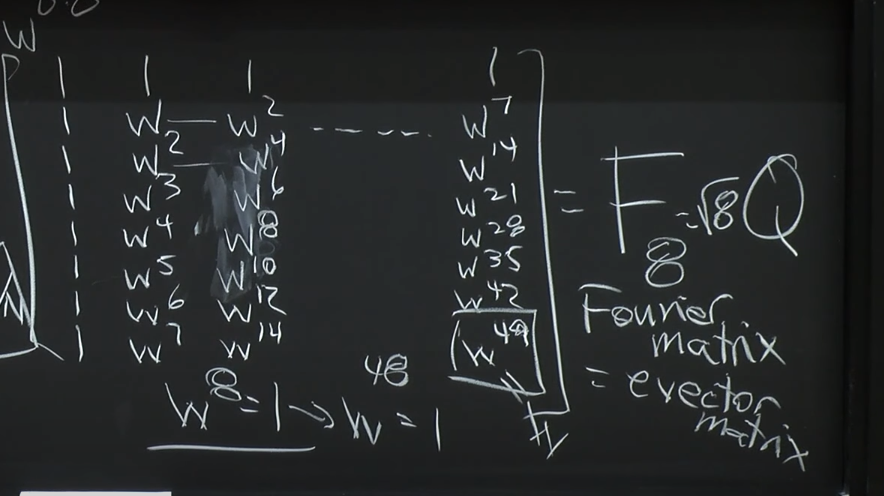 W
1 1 1 1
1 W — W² ------ W⁷
1 W² — W⁴ W¹⁴
1 W³ W⁶ W²¹
1 W⁴ W⁸ W²⁸
1 W⁵ W¹⁰ W³⁵
1 W⁶ W¹² W⁴²
1 W⁷ W¹⁴ W⁴⁹
= F₈ = √8 Q
Fourier
matrix
= evector
matrix
W⁸ = 1 → W⁴⁸ = 1